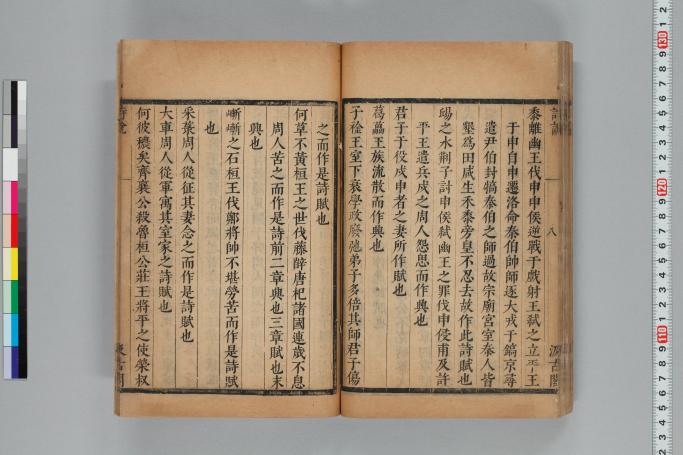 黍離幽王伐申申侯逆戰于戲射王弒之立平王
于申自申遷洛命秦伯帥師逐犬戎于鎬京尋
遣尹伯封犒秦伯之師過故宗廟宮室秦人皆
墾為田咸生禾黍旁皇不忍去故作此詩賦也
揚之水刺子討申侯弒幽王之罪伐申侵甫及許
平王遣兵戍之周人怨思而作興也
君子于役戍申者之妻所作賦也
葛藟王族流散而作興也
子衿王室下衰學政廢弛弟子多倍其師君子傷
之而作是詩賦也
何草不黃桓王之世伐滕薛唐杞諸國連歲不息
周人苦之而作是詩前二章興也三章賦也末
興也
漸漸之石桓王伐鄭將帥不堪勞苦而作是詩賦
也
采葛周人從征其妻念之而作是詩賦也
大車周人從軍寓其室家之詩賦也
何彼穠矣齊襄公殺魯桓公莊王將平之使榮叔
八
汲古閣
110
120
130